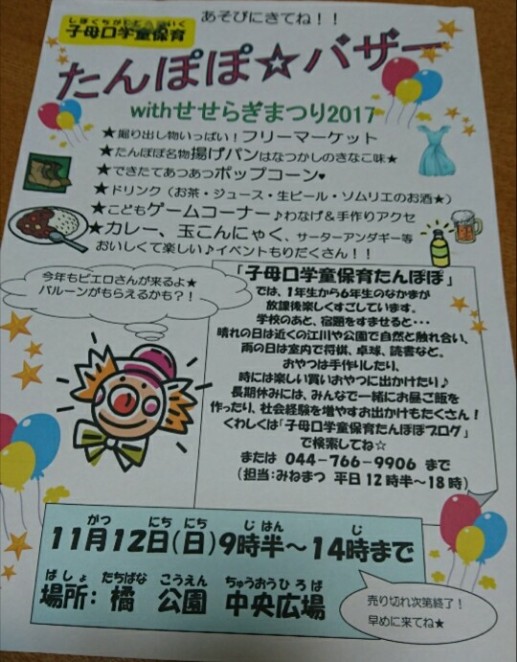 あそびにきてね！！
しぼくちがくどうほいく
子母口学童保育
たんぽぽ☆バザー
withせせらぎまつり2017
★掘り出し物いっぱい！フリーマーケット
★たんぽぽ名物揚げパンはなつかしのきなこ味★
★できたてあつあつポップコーン♥
★ドリンク（お茶・ジュース・生ビール・ソムリエのお酒★）
★こどもゲームコーナー♪わなげ＆手作りアクセ
★カレー、玉こんにゃく、サーターアンダギー等
おいしくて楽しい♪イベントもりだくさん！！
今年もピエロさんが来るよ★
バルーンがもらえるかも？！
「子母口学童保育たんぽぽ」
では、1年生から6年生のなかまが
放課後楽しくすごしています。
学校のあと、宿題をすませると・・・
晴れの日は近くの江川や公園で自然と触れ合い、
雨の日は室内で将棋、卓球、読書など。
おやつは手作りしたり、
時には楽しい買いおやつに出かけたり♪
長期休みには、みんなで一緒にお昼ご飯を
作ったり、社会経験を増やすお出かけもたくさん！
くわしくは「子母口学童保育たんぽぽブログ」
で検索してね☆
または 044-766-9906 まで
（担当：みねまつ 平日12時半～18時）
がつ にち にち じはん じ
11月12日（日）9時半～14時まで
ばしょ たちばな こうえん ちゅうおうひろば
場所：橘 公園 中央広場
売り切れ次第終了！
早めに来てね★